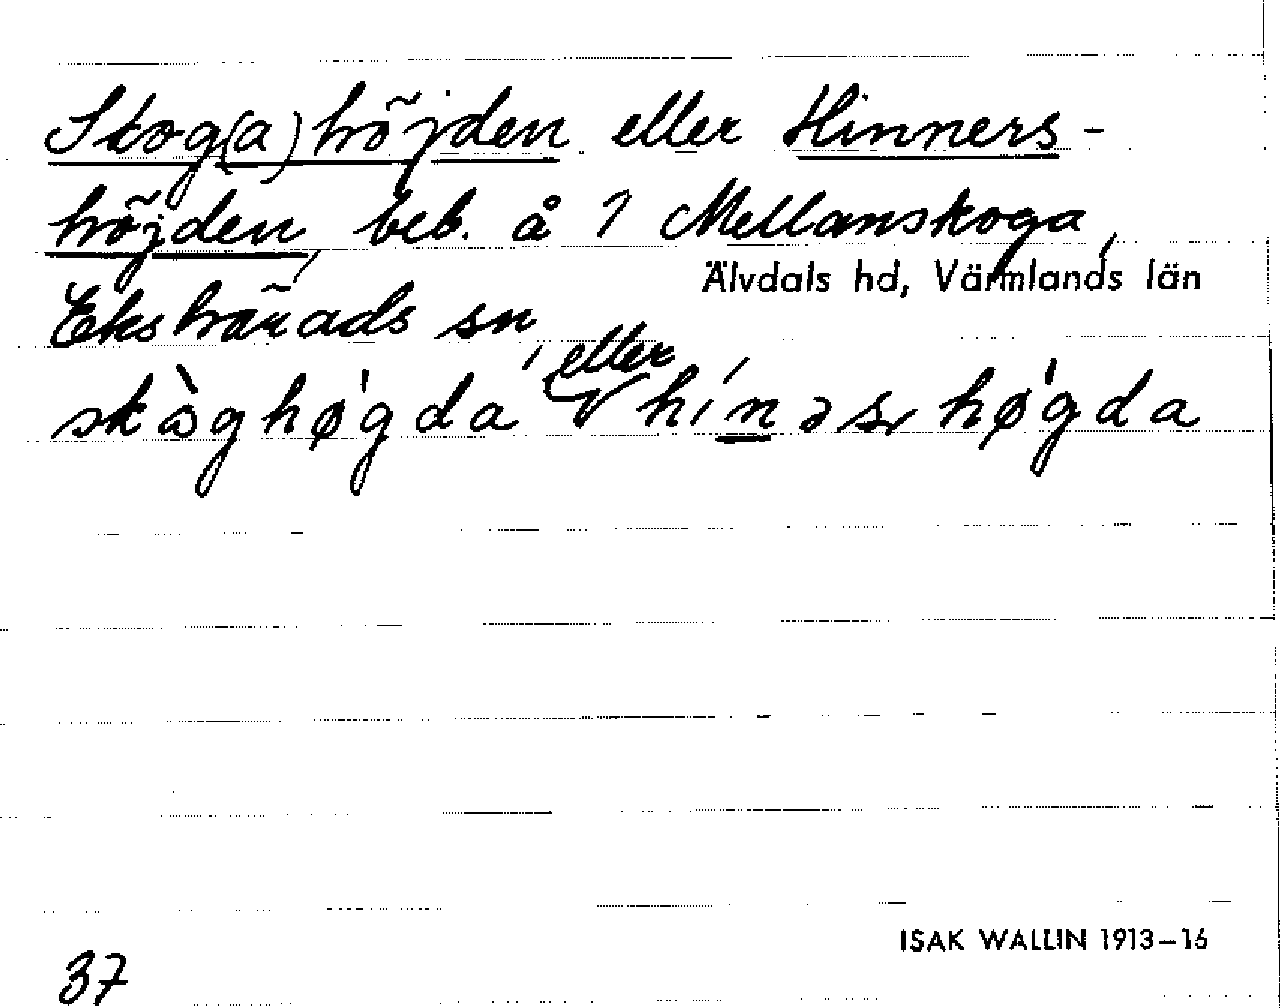 Skog(a)höjden eller Hinners-
höjden, beb. å 1 Mellanskoga,
Älvdals hd, Värmlands län
Ekshärads sn,
skòghø̀gda eller hínəsrhø̀gda
ISAK WALLIN 1913–16
37